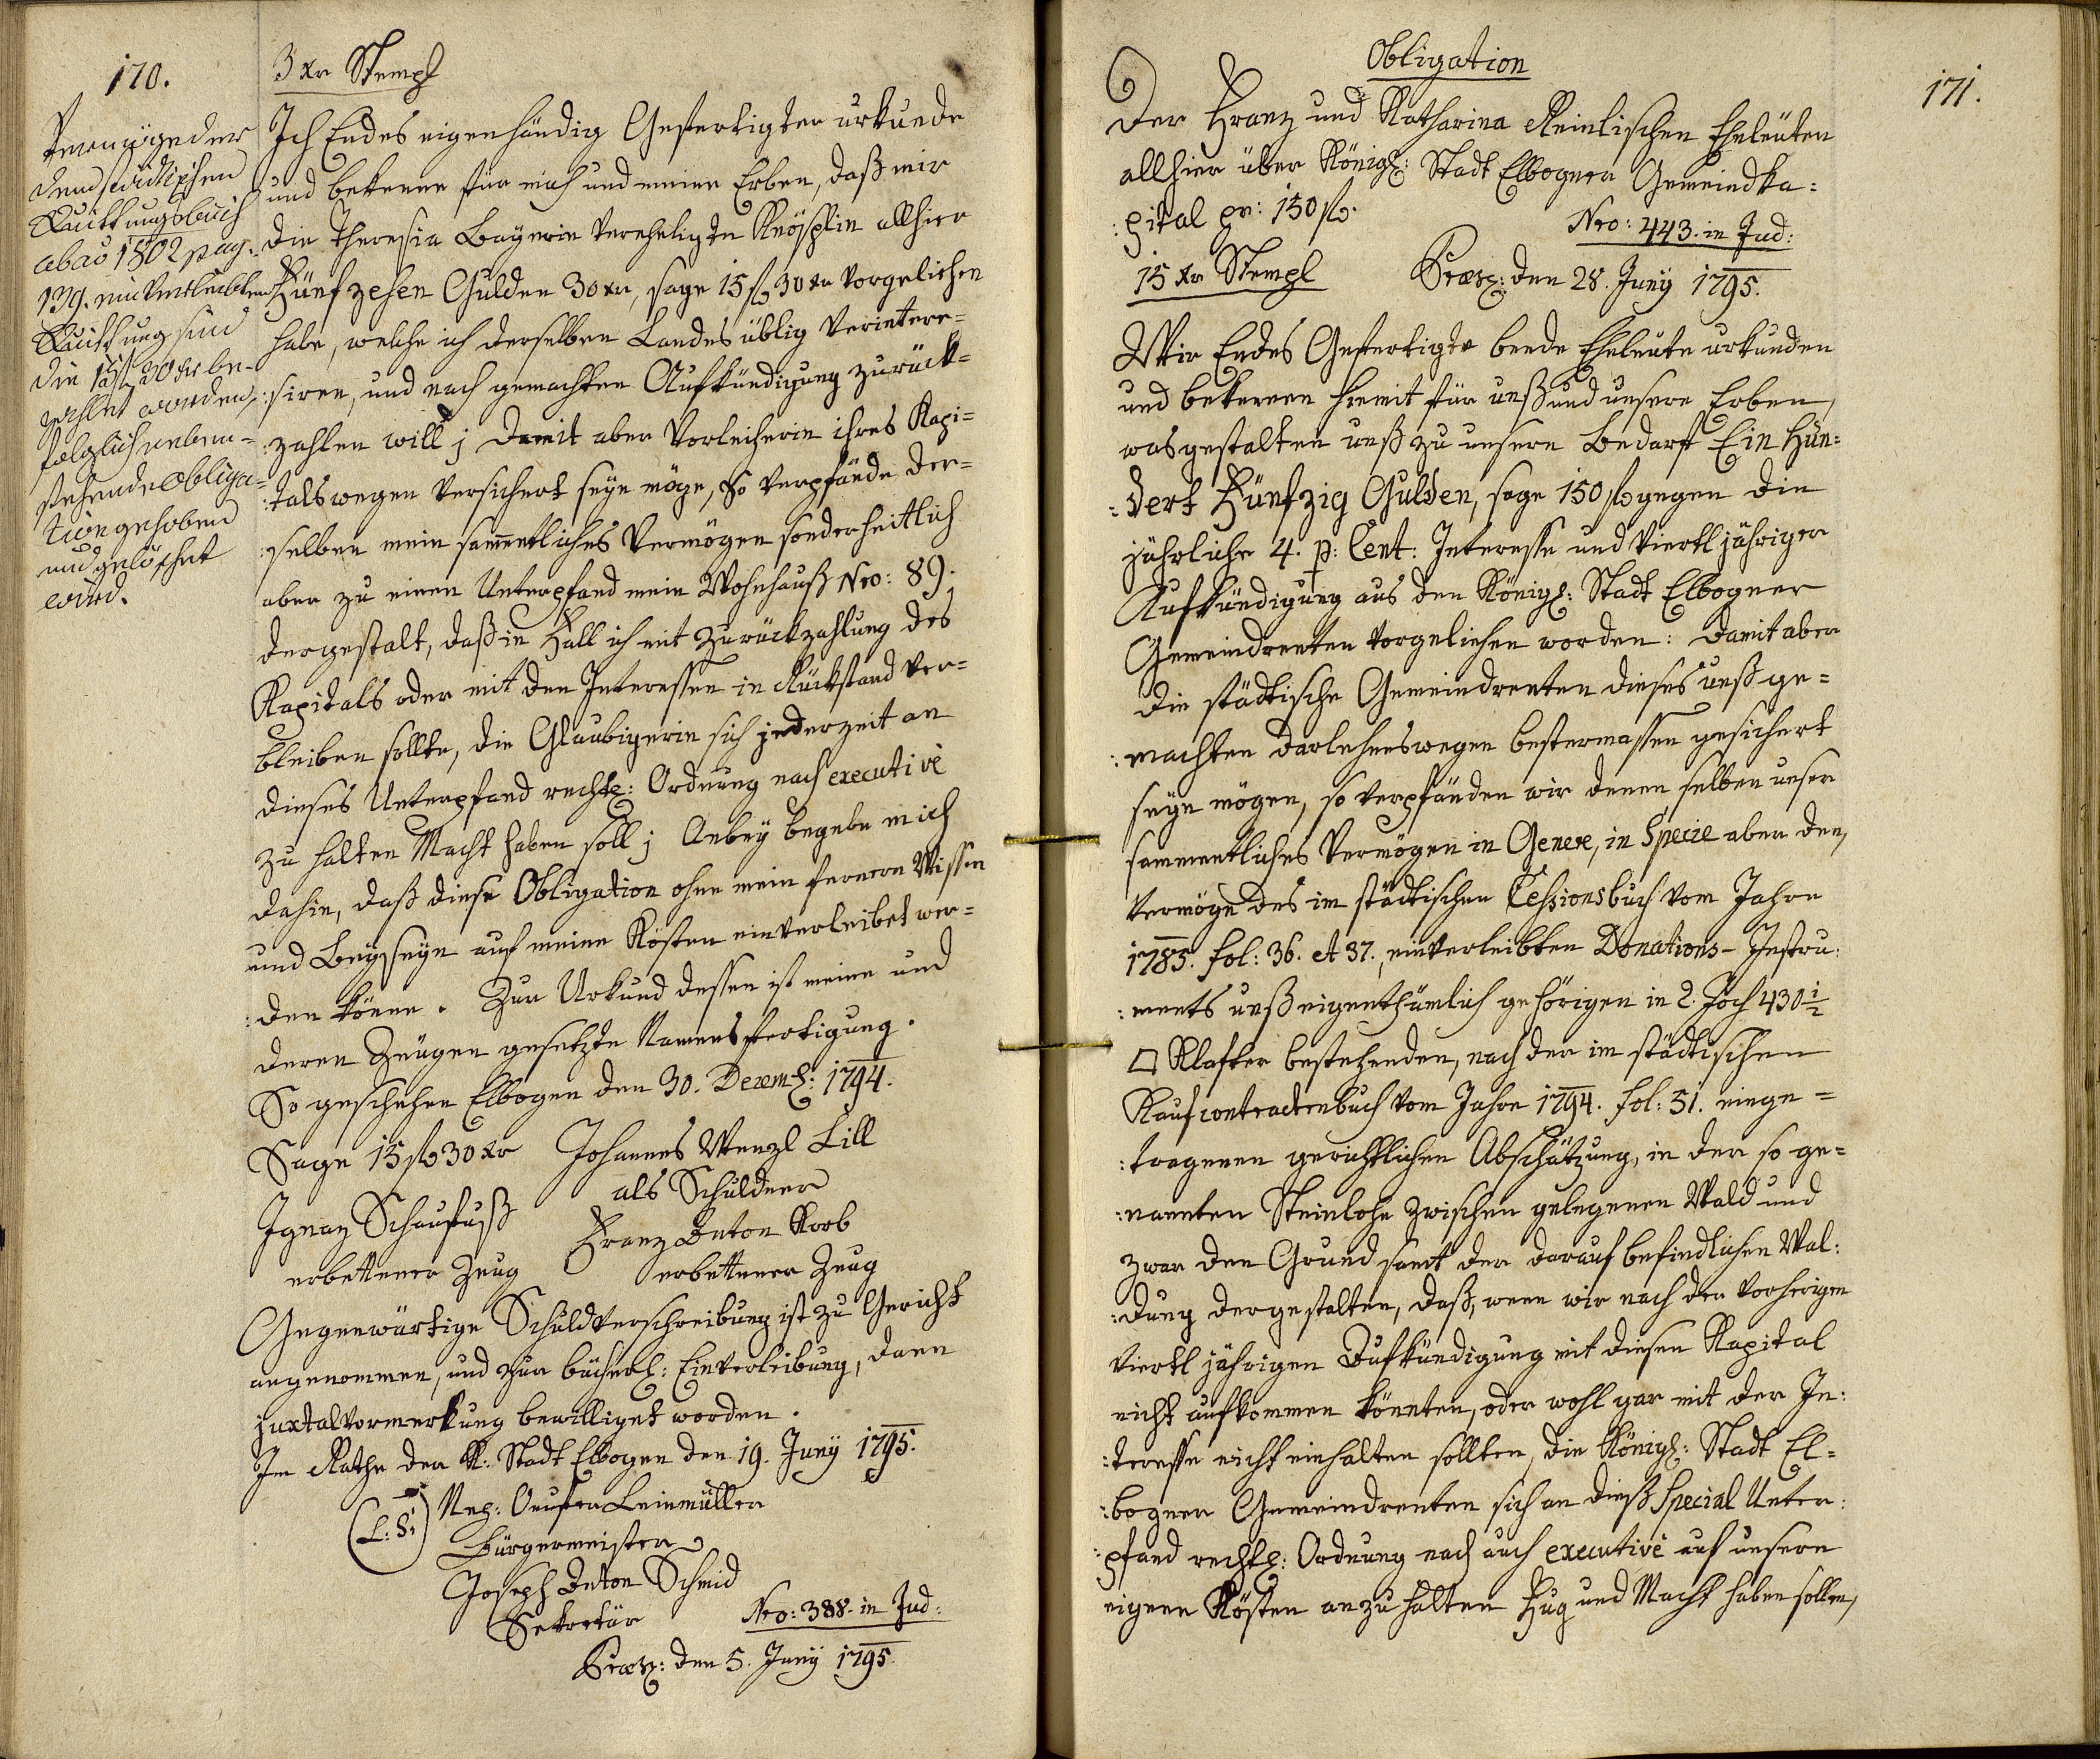 170.
3 xr Stempl
Vermög der
dem städtischen
Quittungsbuch
ab aõ 1802 pag.
139. einverleibten
Quittung sind
die 15 fl 30 xr be-
zahlet worden,
folglich neben-
stehende Obliga-
tion gehoben
und gelöschet
wird.
Ich Endes eigenhändig Gefertigter urkunde
und bekenne für mich und meine Erben, daß mir
die Theresia Bayerin verehligte Knösplin allhier
Fünfzehen Gulden 30 xr, sage 15 fl 30 xr vorgeliehen
habe, welche ich derselben Landes üblig verintere=
:siren, und nach gemachter Aufkündigung zurück=
:zahlen will; damit aber Vorleiherin ihres Kapi=
:talswegen versichert seyn möge, So verpfände der=
:selben mein sammentliches Vermögen sonderheitlich
aber zu einen Unterpfand mein Wohnhauß Nro: 89.
dergestalt, daß in Fall ich mit Zurückzahlung des
Kapitals oder mit den Interessen in Rückstand ver=
bleiben sollte, die Glaubigerin sich jederzeit an
dieses Unterpfand rechtl: Ordnung nach executivè
zu halten Macht haben soll; Anbey begebe mich
dahin, daß diese Obligation ohne mein ferneren Wissen
und Beyseyn auf meine Kösten einverleibet wer=
:den könne. Zur Urkund dessen ist meine und
deren Zeugen gesetzte Namensfertigung.
So geschehen Elbogen den 30. Decemb: 1794.
Sage 15 fl 30 xr Johannes Wenzl Lill
als Schuldner
Ignaz Schaufuß Franz Anton Korb
erbettener Zeug erbettener Zeug
Gegenwärtige Schuldverschreibung ist zu Gericht
angenommen, und zur bücherl: Einverleibung, dann
juxtalvormerkung bewilliget worden.
Im Rathe der K: Stadt Elbogen den 19. Juny 1795.
(L: S:)
Leinmüller
Bürgermeister
Joseph Anton Schmid
Sekretär Nro: 388. in Jud:
Præs: den 5. Juny 1795.
171.
Obligation
Der Franz und Katharina Reinlischen Eheleuten
allhier über Königl: Stadt Elbogner Gemeindka:
:pital pr: 150 fl.
Nro: 443. in Jud:
15 xr Stempl Præs: den 28. Juny 1795.
Wir Endes Gefertigte beede Eheleute urkunden
und bekennen hiemit für unß und unsere Erben,
wasgestalten unß zu unsern Bedarf Ein Hun=
:dert Fünfzig Gulden, sage 150 fl gegen die
jährliche 4. p: Cent: Interesse und viertljähriger
Aufkündigung aus den Königl: Stadt Elbogner
Gemeindrenten vorgeliehen worden: Damit aber
die städtische Gemeindrenten dieses unß ge=
:machten Darlehenswegen bestermassen gesichert
seyn mögen, so verpfänden wir denenselben unser
sammentliches Vermögen in Genere, in Specie aber den,
vermöge des im städtischen Cessionsbuch vom Jahre
1785. fol: 36. et 37., einverleibten Donations- Instru:
:ments unß eigenthümlich gehörigen in 2. Joch 430 1/2
□ Klafter bestehenden, nach der im städtischen
Kaufcontractenbuch vom Jahre 1794. fol: 31. einge=
:tragenen gerichtlichen Abschätzung, in der so ge=
:nannten Steinlohe zwischen gelegenen Wald und
zwar den Grund samt der darauf befindlichen Wal:
:dung dergestalten, daß, wenn wir nach der vorherigen
viertl jährigen Aufkündigung mit diesen Kapital
nicht aufkommen könnten, oder wohl gar mit der In:
:teresse nicht einhalten sollten, die Königl: Stadt El=
:bogner Gemeindrenten sich an dieß Special Unter:
:pfand rechtl: Ordnung nach auch executivè auf unsere
eigene Kösten anzuhalten Fug und Macht haben sollen,